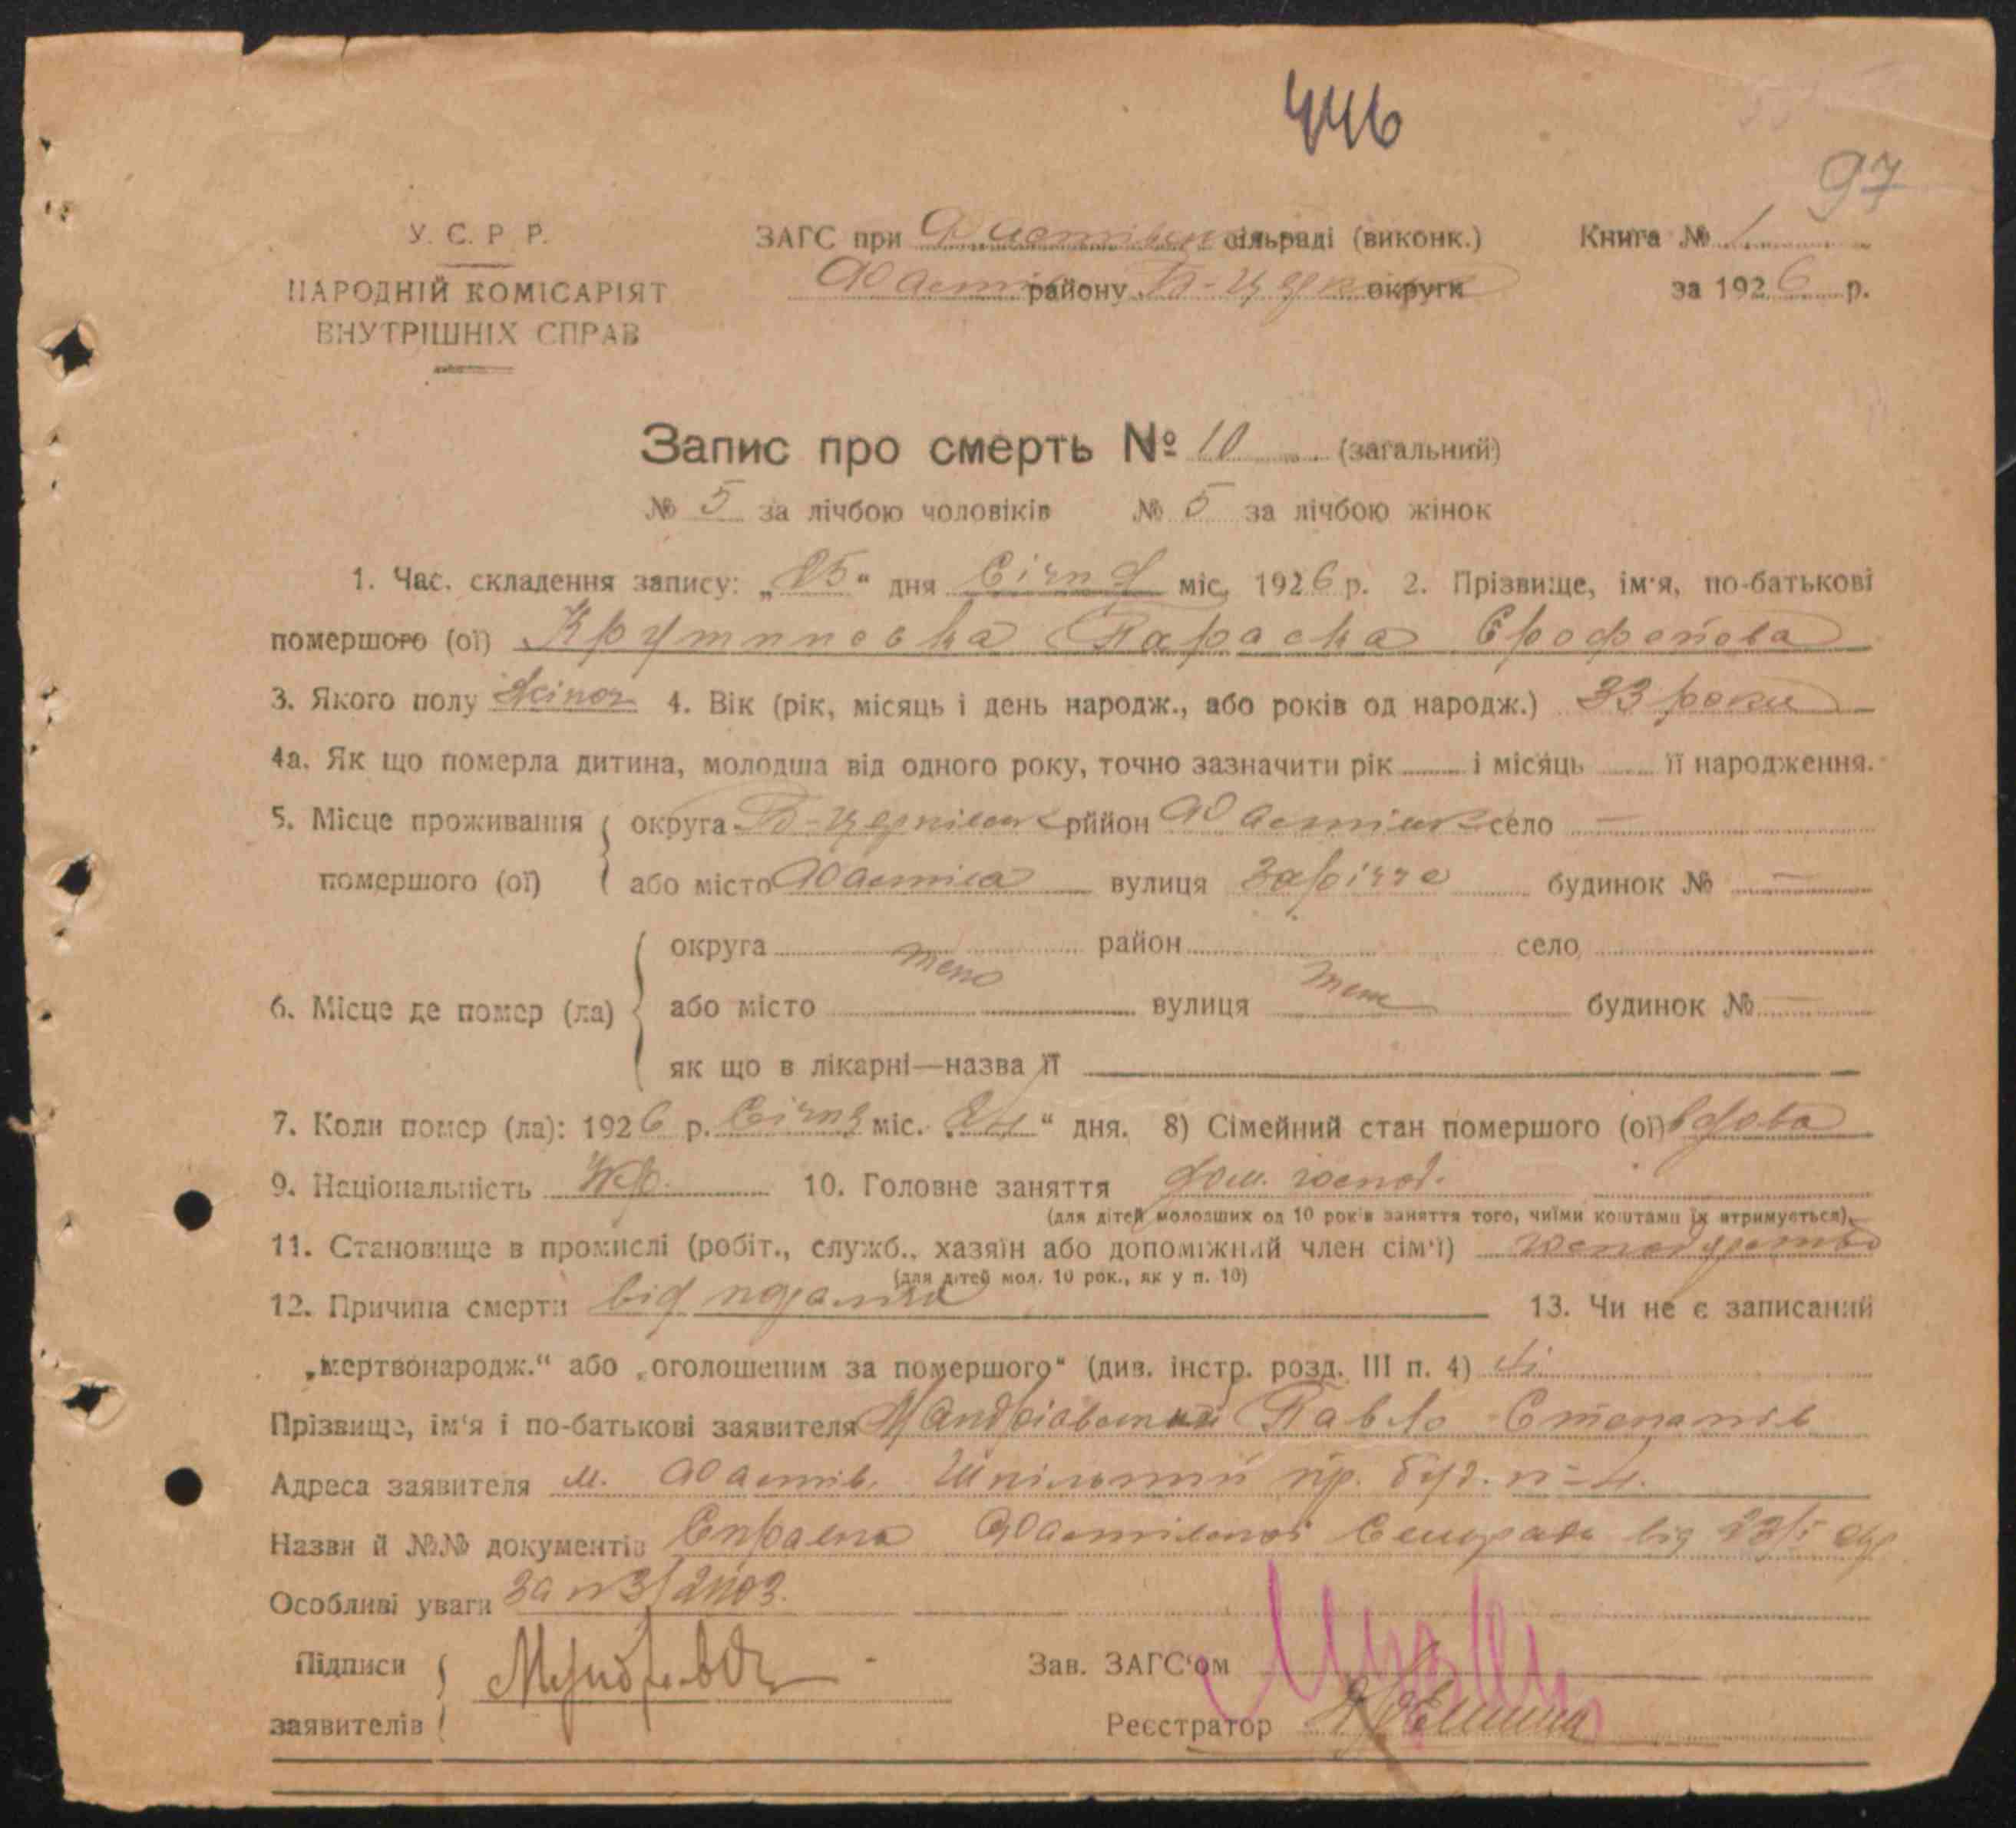 446
97
У. С. Р Р.
ЗАГС при Фастівськ сільраді (виконк.)
Книга № 1
НАРОДНІЙ КОМІСАРІЯТ
Фастів району Б-Церк округи
за 1926 р.
ВНУТРІШНІХ СПРАВ
Запис про смерть № 10 (загальний)
№ 5 за лічбою чоловіків № 5 за лічбою жінок
1. Час. складення запису: „25“ дня Січня міс. 1926 р. 2. Прізвище, ім'я, по-батькові
помершого (ої) Параска
3. Якого полу жіноч 4. Вік (рік, місяць і день народж., або років од народж.) 33 роки
4а. Як що померла дитина, молодша від одного року, точно зазначити рік — і місяць — її народження.
5. Місце проживання округа Б-Церківськ рийон Фастівськ село —
помершого (ої) або місто Фастів вулиця Заріччя будинок № —
округа район село
6. Місце де помер (ла) або місто теж вулиця теж будинок № —
як що в лікарні—назва її —
7. Коли помер (ла): 1926 р. Січня міс. „24“ дня. 8) Сімейний стан помершого (ої) вдова
9. Національність Укр. 10. Головне заняття дом. господ.
(для дітей молодших од 10 років заняття того, чиїми коштами їх втримується).
11. Становище в промислі (робіт., служб., хазяїн або допоміжний член сім'ї)
(для дітей мол. 10 рок., як у п. 10)
12. Причина смерти від 13. Чи не є записаний
„мертвонародж.“ або „оголошеним за помершого“ (див. інстр. розд. III п. 4) Ні
Прізвище, ім'я і по-батькові заявителя Павло Степанів
Адреса заявителя м. Фастів. пр. буд. № 4.
Назви й №№ документів Справка Фастівської від 23/I
Особливі уваги за №
Підписи
Зав. ЗАГС'ом
заявителів
Реєстратор